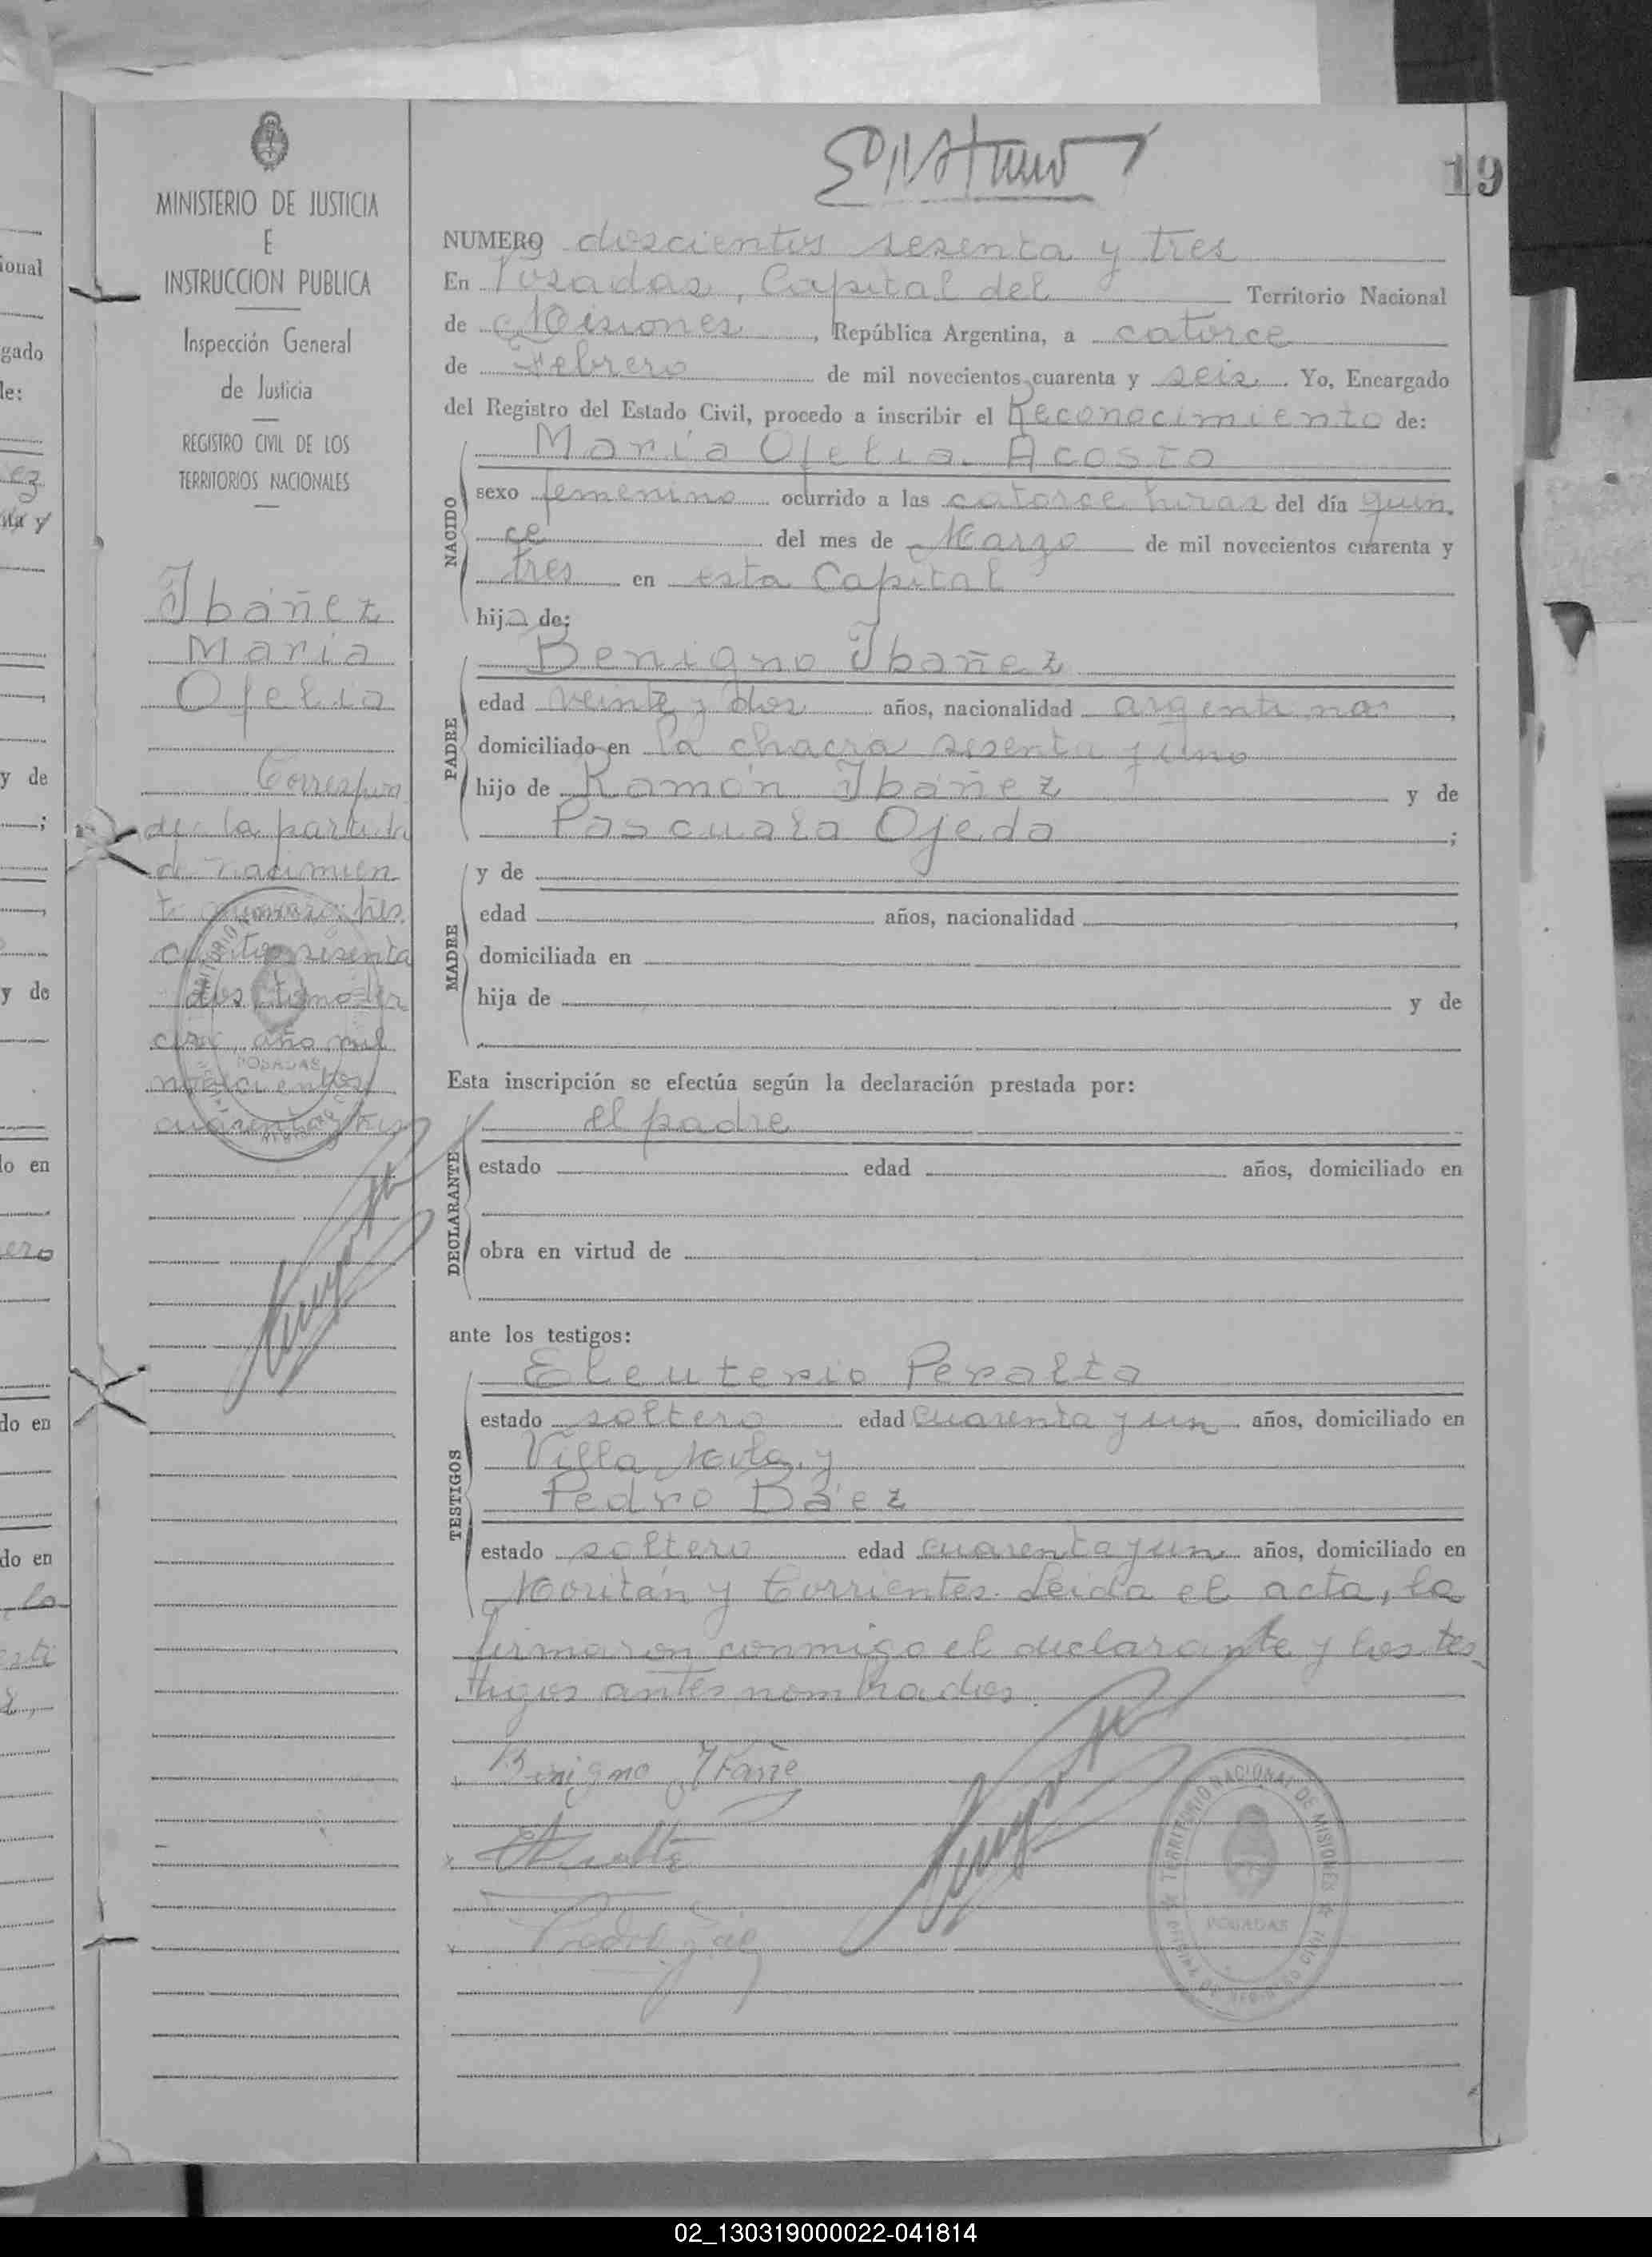 19
MINISTERIO DE JUSTICIA
E
INSTRUCCION PUBLICA
Inspección General
de Justicia
REGISTRO CIVIL DE LOS
TERRITORIOS NACIONALES
Ibáñez
María
Ofelia
Correspon
de la partida
de nacimien
to número tres
cientos sesenta
dos tomo ter
cero, año mil
novecientos
cuarenta y tres
NUMERO doscientos sesenta y tres
En Posadas, Capital del Territorio Nacional
de Misiones, República Argentina, a catorce
de Febrero de mil novecientos cuarenta y seis. Yo, Encargado
del Registro del Estado Civil, procedo a inscribir el Reconocimiento de:
María Ofelia Acosta
NACIDO
sexo femenino ocurrido a las catorce horas del día quin
ce del mes de Marzo de mil novecientos cuarenta y
tres en esta Capital
hija de:
Benigno Ibáñez
PADRE
edad veinte y dos años, nacionalidad argentina
domiciliado en la chacra sesenta y uno
hijo de Ramón Ibáñez y de
Pascuala Ojeda;
MADRE
y de
edad años, nacionalidad
domiciliada en
hija de y de
Esta inscripción se efectúa según la declaración prestada por:
el padre
DECLARANTE
estado edad años, domiciliado en
obra en virtud de
ante los testigos:
Eleuterio Peralta
TESTIGOS
estado soltero edad cuarenta y un años, domiciliado en
Villa y
Pedro Báez
estado soltero edad cuarenta y un años, domiciliado en
Moritán y Corrientes. Leída el acta, la
firmaron conmigo el declarante y los tes
tigos antes nombrados.
Benigno Ibañe
TERRITORIO NACIONAL DE MISIONES
POSADAS
02_130319000022-041814